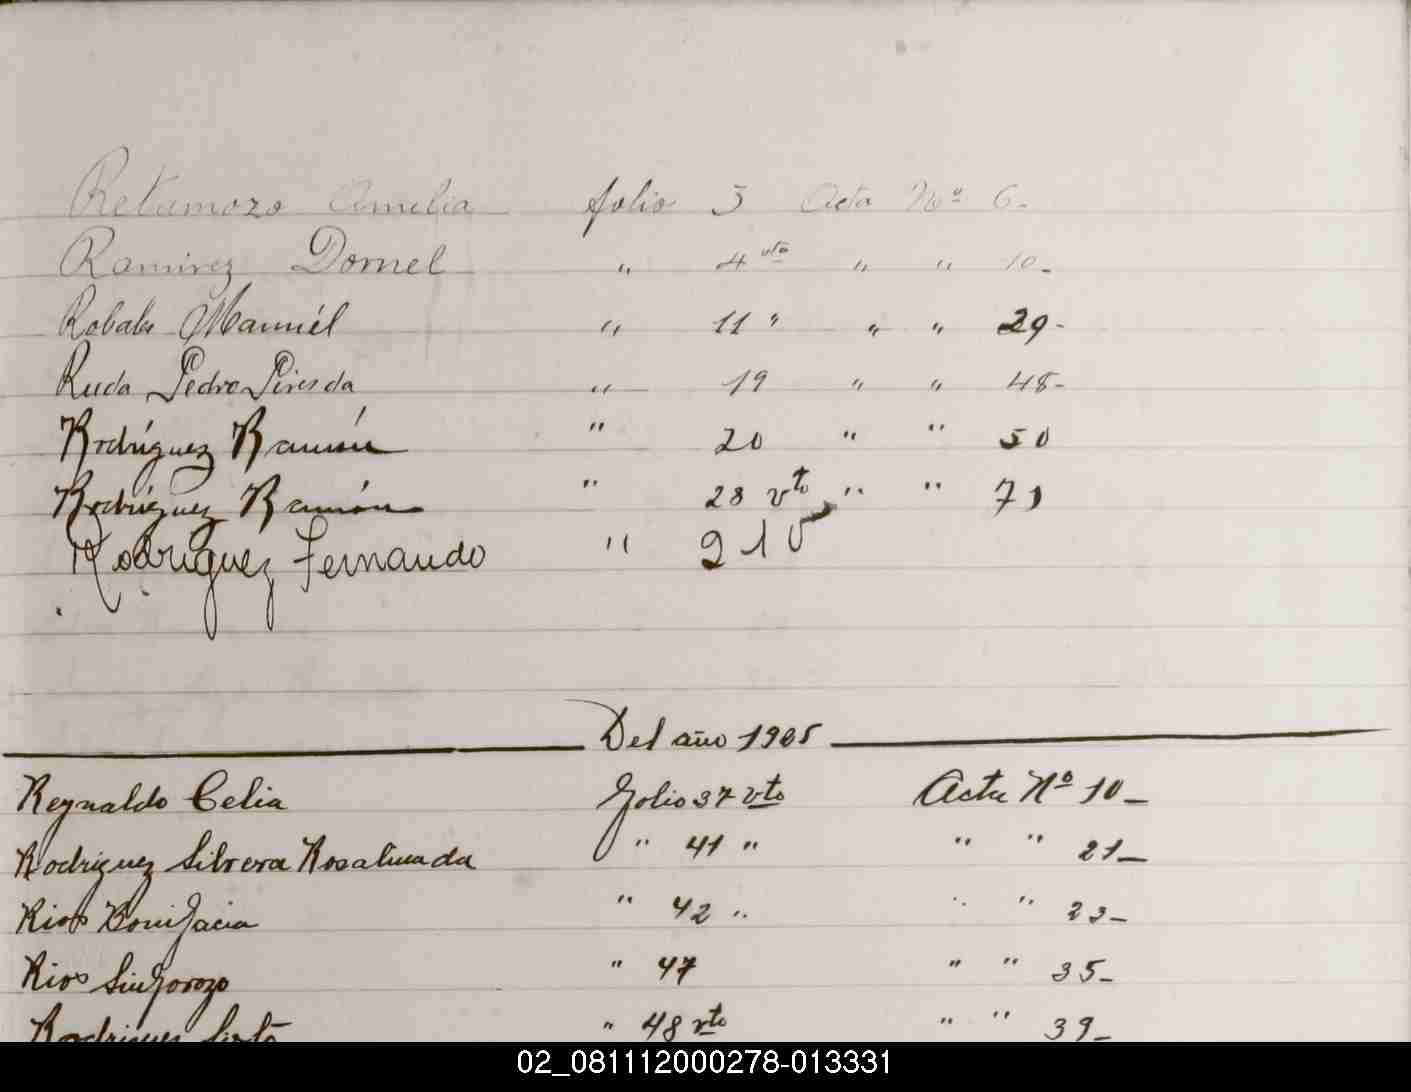 Retamozo Amelia folio 3 Acta Nº 6-
Ramirez Dornel " 4 vto " " 10-
Robales Manuél " 11 " " " 29-
Ruda Pedro Piresda " 19 " " 48-
Rodríguez Ramón " 20 " " 50
Rodríguez Ramón " 28 vto " " 71
Rodriguez Fernando " 21 v
Del año 1905
Reynaldo Celia Folio 37 vto Acta Nº 10-
Rodriguez Silvera Rosalinada " 41 " " " 21-
Rios Bonifacia " 42 " " " 23-
Rios Sinforozo " 47 " " 35-
Rodriguez Sixto " 48 vto " " 39-
02_081112000278-013331